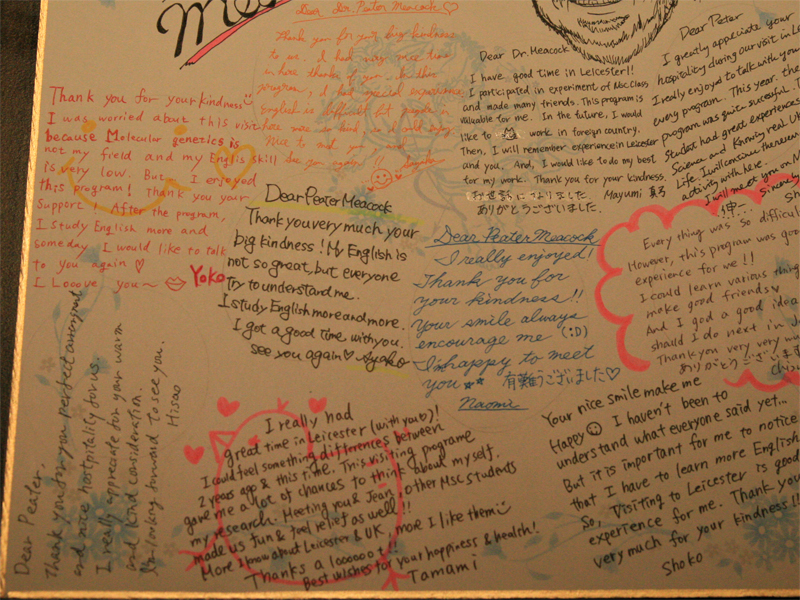 Dear Dr. Peater Meacock♡
Thank you for your big kindness
to me. I had very nice time
in here thanks to you. In this
program, I had special experience
English is difficult but people in
here were so kind, so I could enjoy.
Nice to meet you and
See you again!!
Thank you for your kindness
I was worried about this visit
because Molecular genetics is
not my field and my Englis skill
is very low. But I enjoyed
this program! Thank you your
support! After the program,
I study English more and
someday I would like to talk
to you again♡
I Looove you~
Yoko
Dear Dr. Meacock
I have good time in Leicester!!
I participated in experiment of Msc Class
and made many friends. This program is
valuable for me. In the future, I would
like to work in foreign country.
Then, I will remember experience in Leicester
and you. And, I would like to do my best
for my work. Thank you for your kindness.
お世話になりました
ありがとうございました。
Mayumi
Dear Peter
I greatly appreciate your
hospitality during our visit in
I really enjoyed to talk with you
every program. This year, the
program was quit sucessful.
Student had great experiences
Science and Knowing real
Life. I will continue there
activity with here.
I will meet you on
Sincerely
Dear Peater Meacock
Thank you very much your
big kindness! My English is
not so great, but everyone
Try to understand me.
I study English more and more.
I got a good time with you.
see you again♡ Ayako
Dear Peater Meacock
I really enjoyed!
Thank you for
your kindness!!
Your smile always
encourage me (:D)
I'm happy to meet
you★★ 有難うございました♡
Naomi
Every thing was so difficul
However, this program was good
experience for me!!
I could learn various thing
make good friends♥
And I god a good idea
should I do next in
Thank you very
ありがとうございま
Dear Peater.
Thank you for your perfect arrangement
and nice hostpitality for us.
I really appreciate for your warm
and kind consideration.
I'm looking forward to see you.
Hisao
I really had
great time in Leicester (with you)!
I could feel something differences between
2 years ago & this time. This visiting programe
gave me a lot of chances to think about myself.
my research. Meeting you & Jean, other MSC students
made us fun & fuel relief as well!!
More I know about Leicester & UK, more I like them
Thanks a loooooot!
Best wishes for your happiness & health!
Tamami
Your nice smile make me
Happy I haven't been to
understand what everyone said yet...
But it is important for me to notice
that I have to learn more English
So, Visiting to Leicester is good
experience for me. Thank you
very much for your kindness!!
Shoko